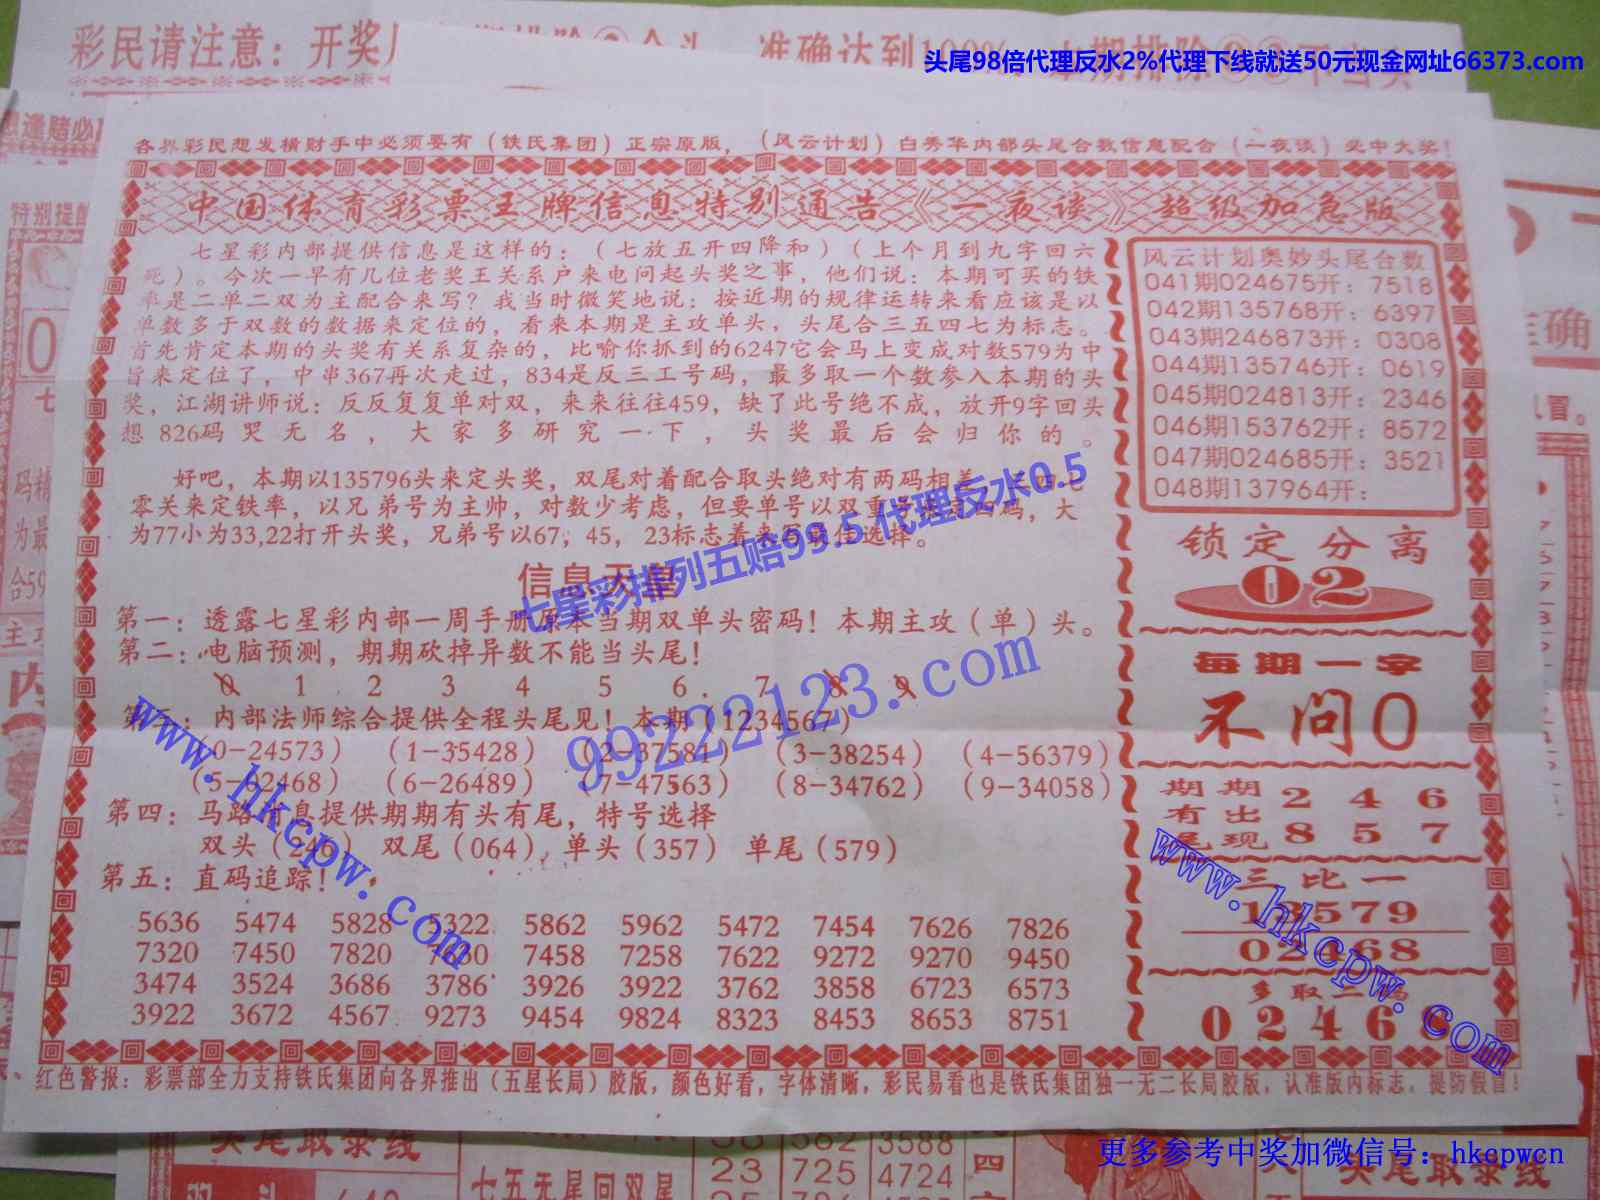 彩民请注意：开奖
准确达到100%
头尾98倍代理反水2%代理下线就送50元现金网址66373.com
各界彩民想发横财手中必须要有（铁氏集团）正宗原版，（风云计划）白秀华内部头尾合数信息配合（一夜谈）必中大奖！
中国体育彩票王牌信息特别通告《一夜谈》超级加急版
七星彩内部提供信息是这样的：（七放五开四降和）（上个月到九字回六
死）。今次一早有几位老奖王关系户来电问起头奖之事，他们说：本期可买的铁
率是二单二双为主配合来写？我当时微笑地说：按近期的规律运转来看应该是以
单数多于双数的数据来定位的，看来本期是主攻单头，头尾合三五四七为标志。
首先肯定本期的头奖有关系复杂的，比喻你抓到的6247它会马上变成对数579为中
旨来定位了，中串367再次走过，834是反三工号码，最多取一个数参入本期的头
奖，江湖讲师说：反反复复单对双，来来往往459，缺了此号绝不成，放开9字回头
想826码哭无名，大家多研究一下，头奖最后会归你的。
好吧，本期以135796头来定头奖，双尾对着配合取头绝对有两码相差
零关来定铁率，以兄弟号为主帅，对数少考虑，但要单号以双重号 码，大
为77小为33,22打开头奖，兄弟号以67，45，23标志着来 最佳选择。
七星彩排列五赔99.5 代理反水0.5
信息天皇
第一：透露七星彩内部一周手册原本当期双单头密码！本期主攻（单）头。
第二：电脑预测，期期砍掉异数不能当头尾！
0 1 2 3 4 5 6 7 8 9
第三：内部法师综合提供全程头尾见！本期（1234567）
（0-24573）（1-35428）（2-37581）（3-38254）（4-56379）
（5-02468）（6-26489）（7-47563）（8-34762）（9-34058）
第四：马路信息提供期期有头有尾，特号选择
双头（246）双尾（064），单头（357）单尾（579）
第五：直码追踪！
5636 5474 5828 5322 5862 5962 5472 7454 7626 7826
7320 7450 7820 7458 7258 7622 9272 9270 9450
3474 3524 3686 3786 3926 3922 3762 3858 6723 6573
3922 3672 4567 9273 9454 9824 8323 8453 8653 8751
99222123.com
www.hkcpw.com
风云计划奥妙头尾合数
041期024675开：7518
042期135768开：6397
043期246873开：0308
044期135746开：0619
045期024813开：2346
046期153762开：8572
047期024685开：3521
048期137964开：
锁定分离
02
每期一字
不问0
期期 2 4 6
有出
尾现 8 5 7
三比一
13579
02468
多取二码
0246
www.hkcpw.com
红色警报：彩票部全力支持铁氏集团向各界推出（五星长局）胶版，颜色好看，字体清晰，彩民易看也是铁氏集团独一无二长局胶版，认准版内标志，提防假冒！
头尾取录线
七五无星回双星
562 3588
23 725 4724
四
更多参考中奖加微信号：hkcpwcn
头尾取录线